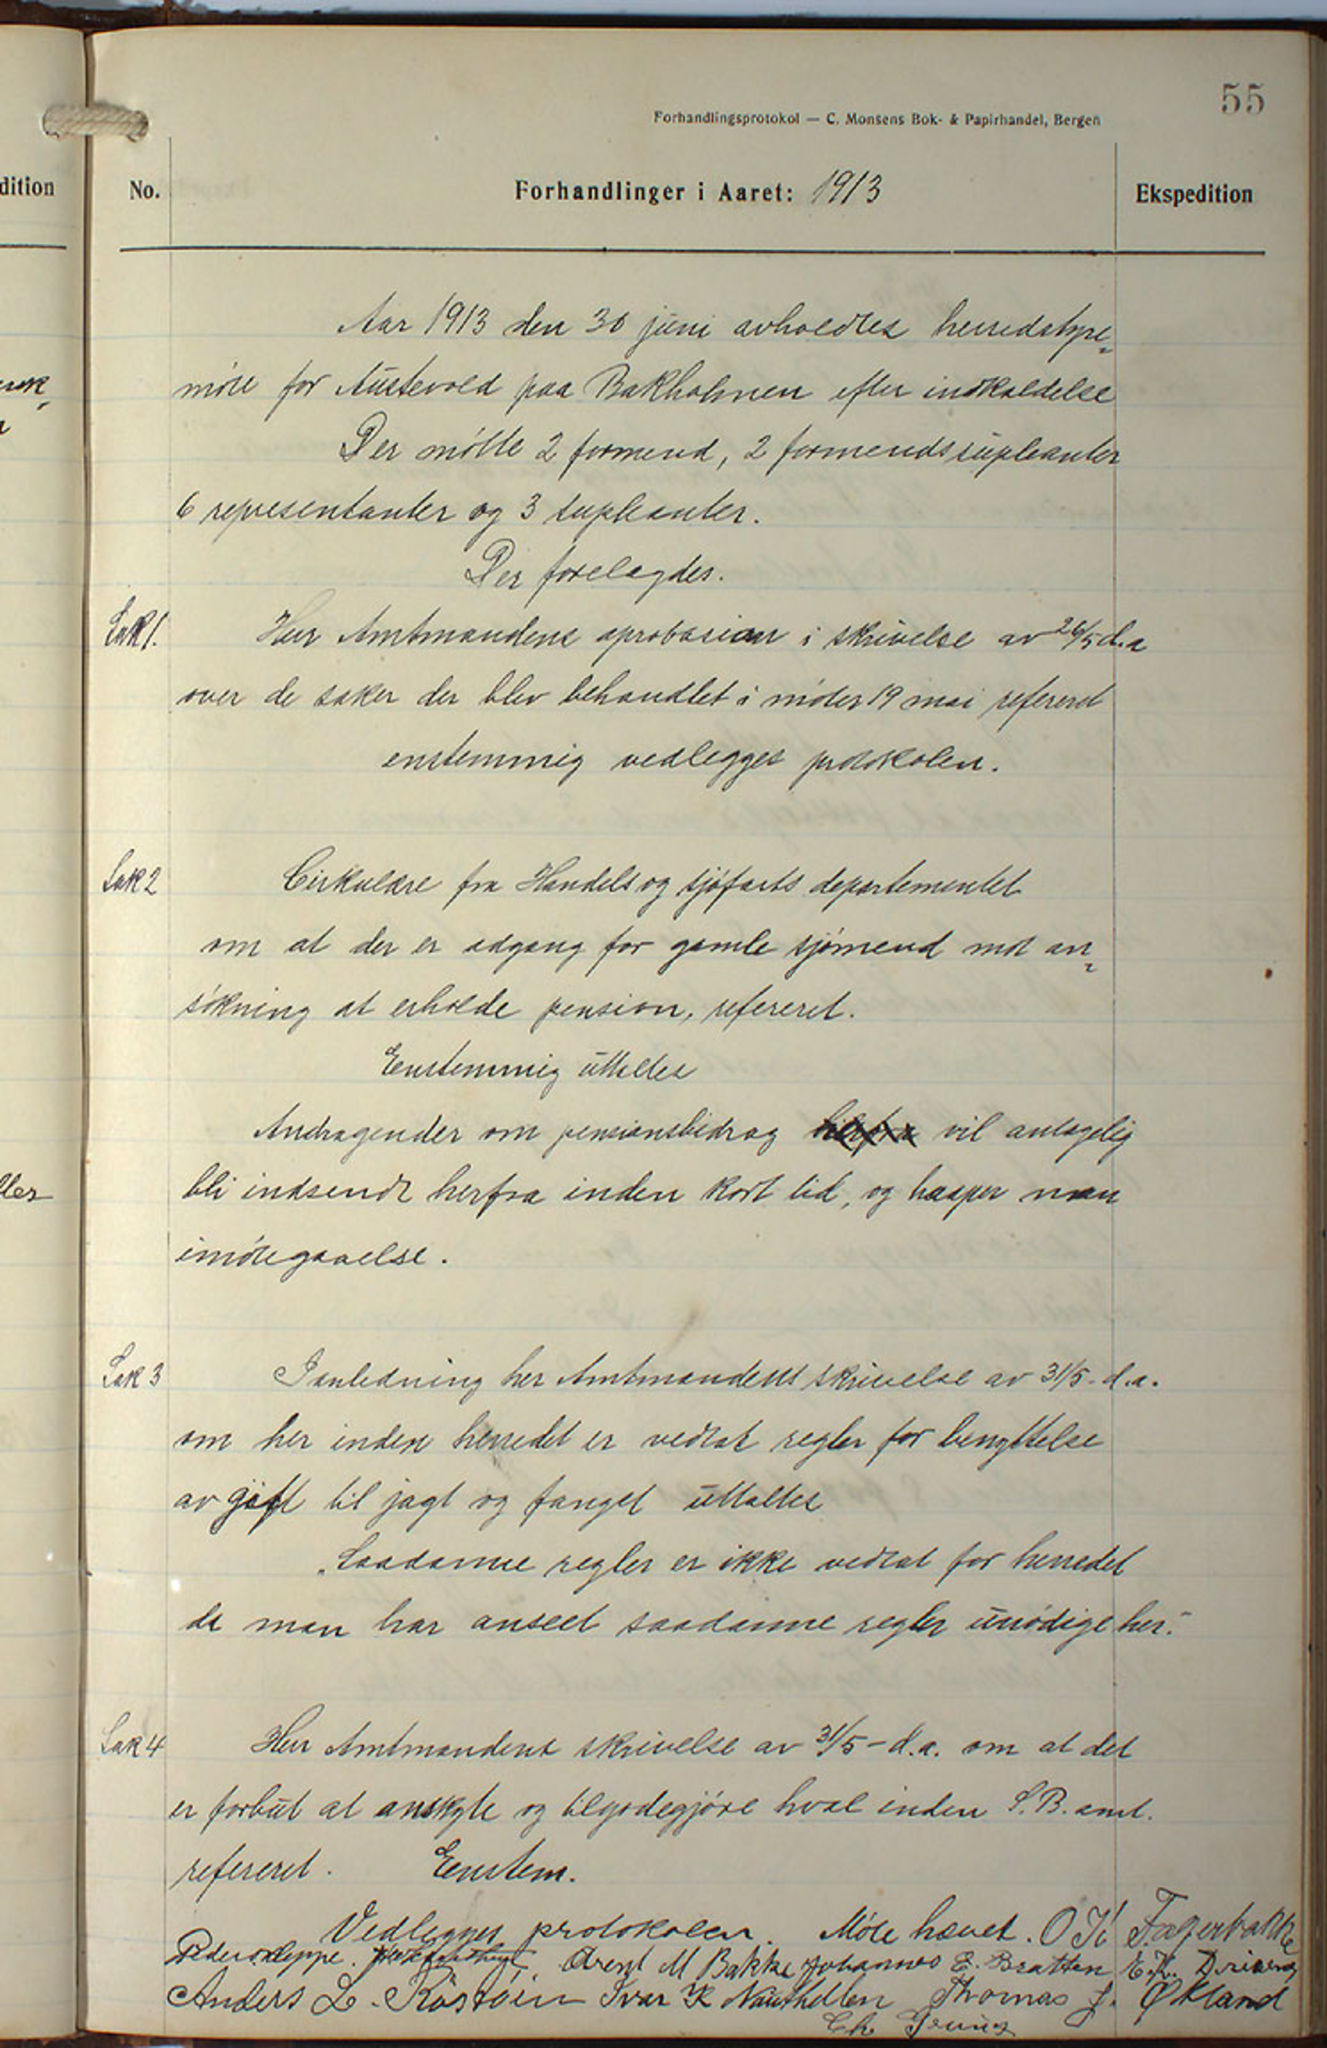 55
Forhandlingsprotokol — C. Monsens Bok- & Papirhandel, Bergen
dition
No.
Forhandlinger i Aaret: 1913
Ekspedition
Aar 1913 den 30 juni avholdtes herredstyre-
møte for Austevold paa Bakholmen efter indkaldelse
Der møtte 2 formend, 2 formendssupleanter
6 representanter og 3 supleanter.
Der forelagdes.
Sak 1.
Herr Amtmandens aprobasion i skrivelse av 26/5 d.a
over de saker der blev behandlet i møtes 19 mai refereret
enstemmig vedlegges protokolen.
Sak 2
Cirkulære fra Handels og sjøfarts departementet
om at der er adgang for gamle sjømend mot an-
søkning at erholde pension, refereret.
Enstemmig uttaltes
Andragender om pensionsbidrag herfra vil antagelig
bli indsendt herfra inden kort tid, og haaper man
imøtegaaelse.
Sak 3
I anledning her Amtmandens skrivelse av 31/5 - d.a.
om her inden herredet er vedtat regler for benyttelse
av gift til jagt og fangst uttaltes
„Saadanne regler er ikke vedtat for herredet
da man har anseet saadanne regler unødige her."
Sak 4
Herr Amtmandens skrivelse av 31/5 - d.a. om at det
er forbut at anskyte og tilgodegjøre hval inden S.B. amt.
refereret. Enstem.
Vedlegges protokolen. Møte hævet. O K Fagerbakke
Arent M Bakke Johannes E. Bratten E. K.
Anders L. Røstøen Ivar K Nauthellen Thomas J. Økland
Ch